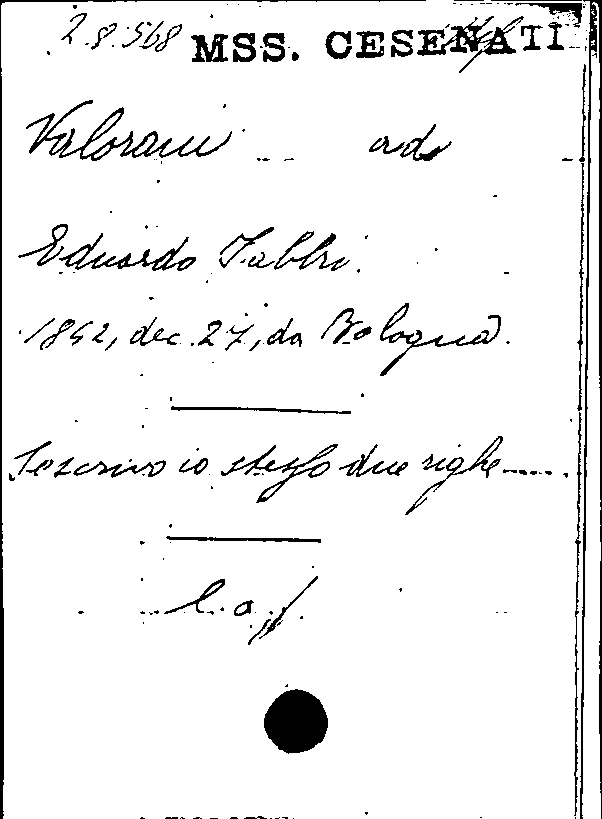 2.8.568 MSS. CESENATI
Valorani ad
Eduardo Fabbri.
1842, dec. 27, da Bologna.
Se scrivo io stesso due righe.....
l. a. f.